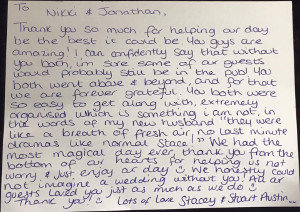 To Nikki & Jonathan,
Thank you so much for helping our day
be the best it could be. You guys are
amazing! I can confidently say that without
you both, im sure some of our guests
would probably still be in the pub! You
both went above & beyond, and for that
we are forever grateful. You both were
so easy to get along with, extremely
organised which is something i am not, in
the words of my new husband "they were
like a breath of fresh air, no last minute
dramas like normal Stace!" We had the
most magical day ever, thank you from the
bottom of our hearts for helping us not
worry & just enjoy our day :) We honestly could
not imagine a wedding without you! All our
guests loved you just as much as we do :)
Thank you!! Lots of Love Stacey & Stuart Austin...